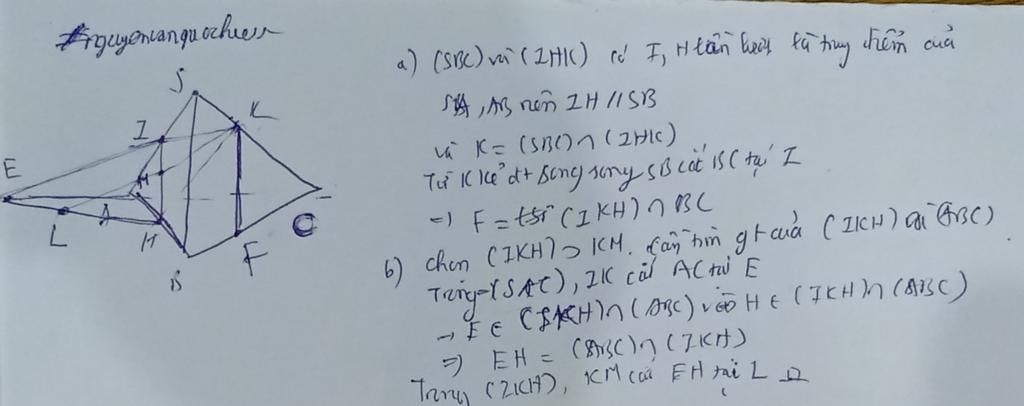 nguyenvanquochuen
S
I
K
E
M
L
A
H
C
B
F
a) (SBC) và (IHK) có I, H lần lượt là trung điểm của
SA, AB nên IH // SB
và K = (SBC) ∩ (IHK)
Từ K kẻ đt song song SB cắt BC tại I
=> F = (IKH) ∩ BC
b) chọn (IKH) ⊃ KM. Cần tìm gt của (IKH) và (ABC)
Trong (SAC), IK cắt AC tại E
→ E ∈ (IKH) ∩ (ABC) và H ∈ (IKH) ∩ (ABC)
=> EH = (ABC) ∩ (IKH)
Trong (IKH), KM cắt EH tại L